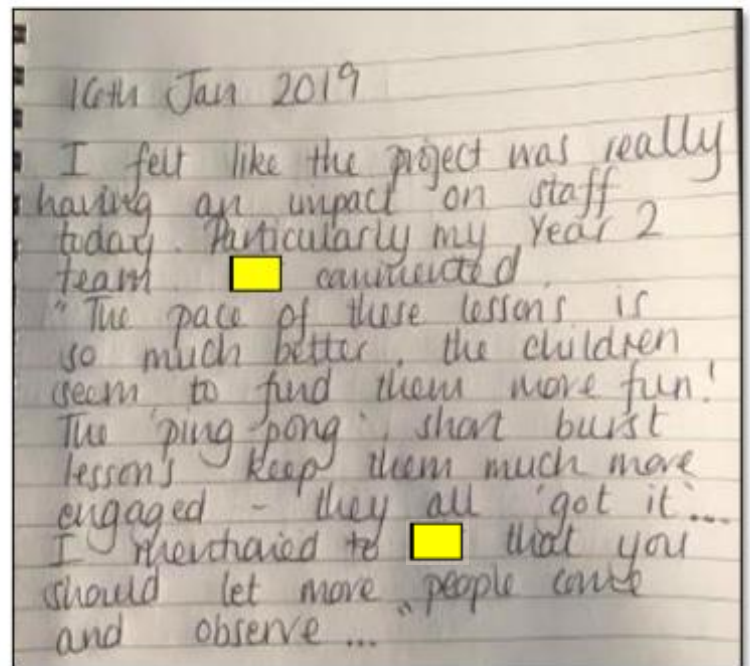 16th Jan 2019
I felt like the project was really
having an impact on staff
today. Particularly my Year 2
team. commented.
"The pace of these lessons is
so much better, the children
seem to find them more fun!
The 'ping-pong', short burst
lessons keep them much more
engaged - they all 'got it'...
I mentioned to that you
should let more people come
and observe...